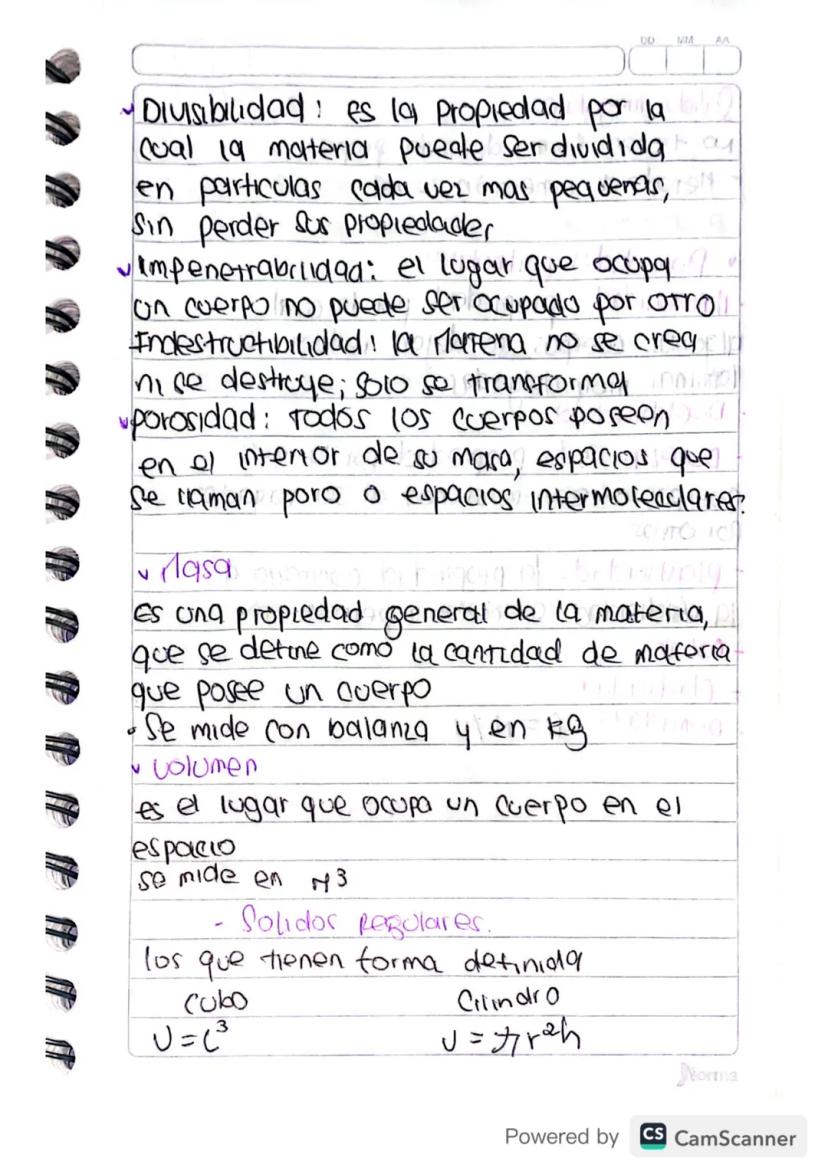 DD MM AA
Divisibilidad: es la propiedad por la
cual la materia puede ser dividida
en particulas cada vez mas pequeñas,
sin perder sus propiedades
Impenetrabilidad: el lugar que ocupa
un cuerpo no puede ser ocupado por otro
Indestructibilidad: la Materia no se crea
ni se destruye; solo se transforma
porosidad: Todos los cuerpos poseen
en el interior de su masa, espacios que
se llaman poro o espacios intermoleculares.
Masa
es una propiedad general de la materia,
que se define como la cantidad de materia
que posee un cuerpo
• Se mide con balanza y en kg
volumen
es el lugar que ocupa un cuerpo en el
espacio
se mide en M3
- Solidos Regulares.
los que tienen forma definida
cubo Cilindro
V = L³ V = πr²h
Norma
Powered by CS CamScanner